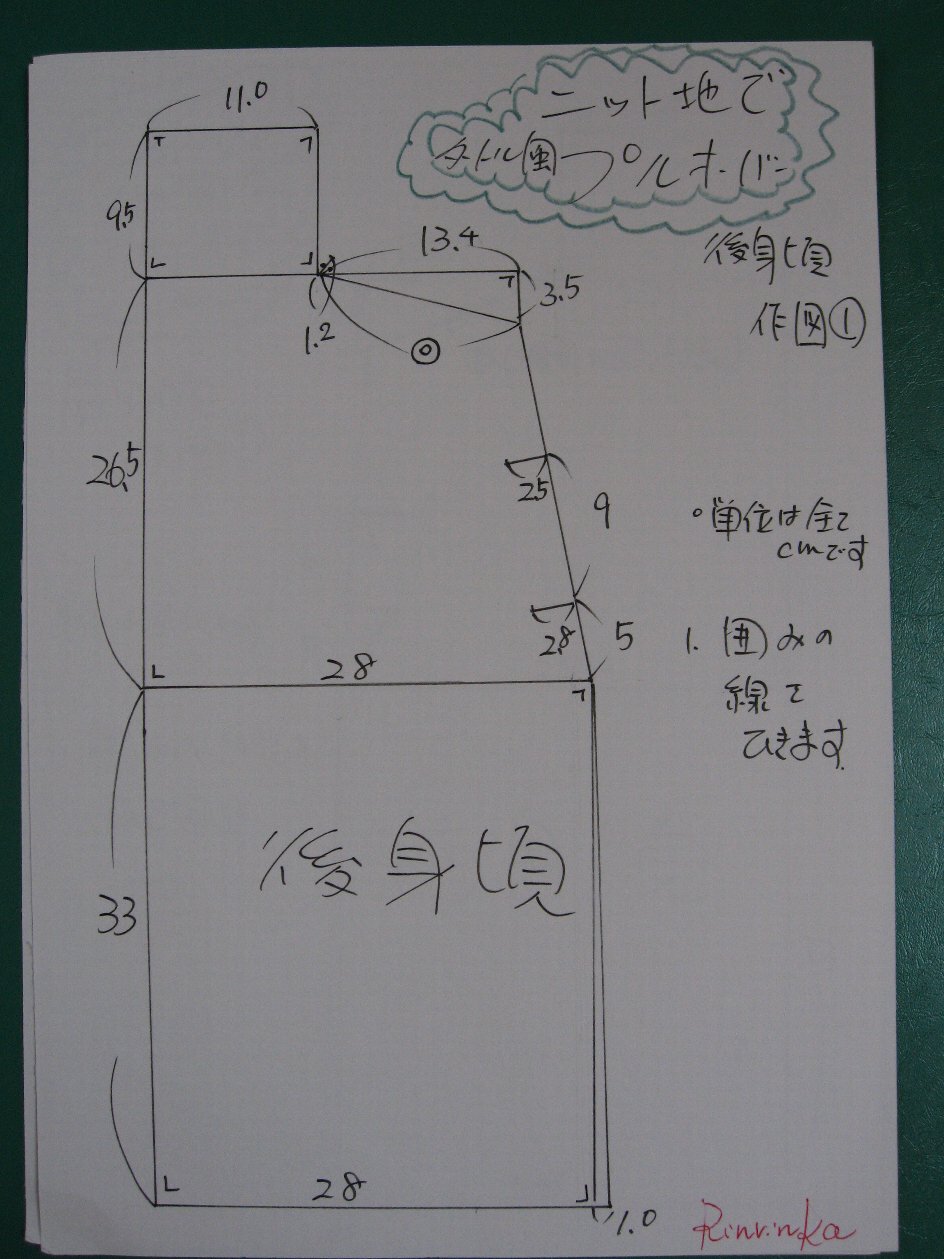 ニット地で
タートル風プルオーバー
後身頃
作図①
11.0
9.5
13.4
3.5
1.2
◎
26.5
2.5
9
2.8
5
28
。単位は全て
cmです
1. 囲みの
線で
ひきます.
後身頃
33
28
1.0
Rinrinka